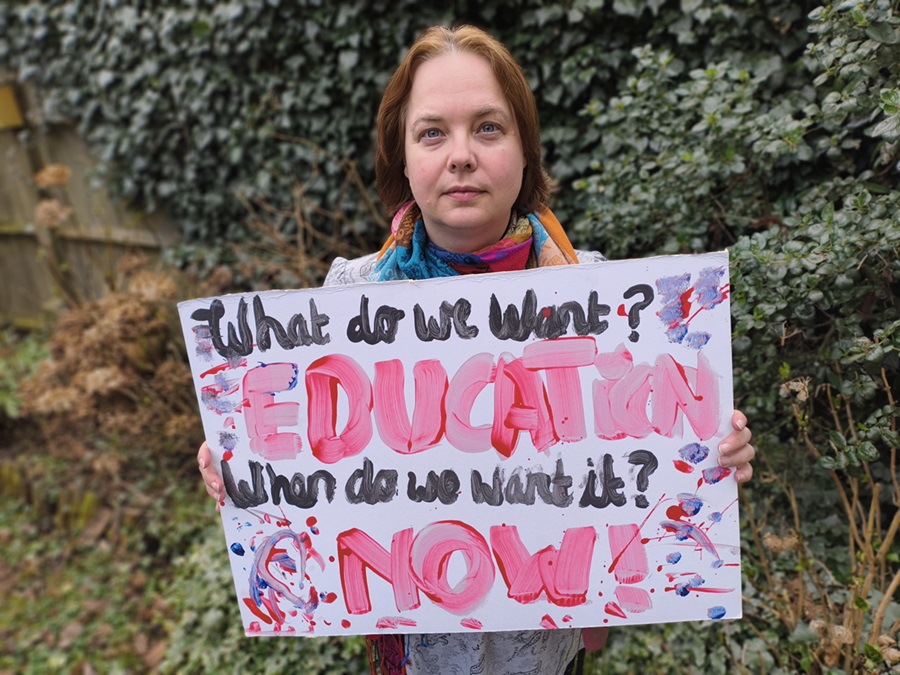 What do we want?
EDUCATiON
When do we want it?
NOW!